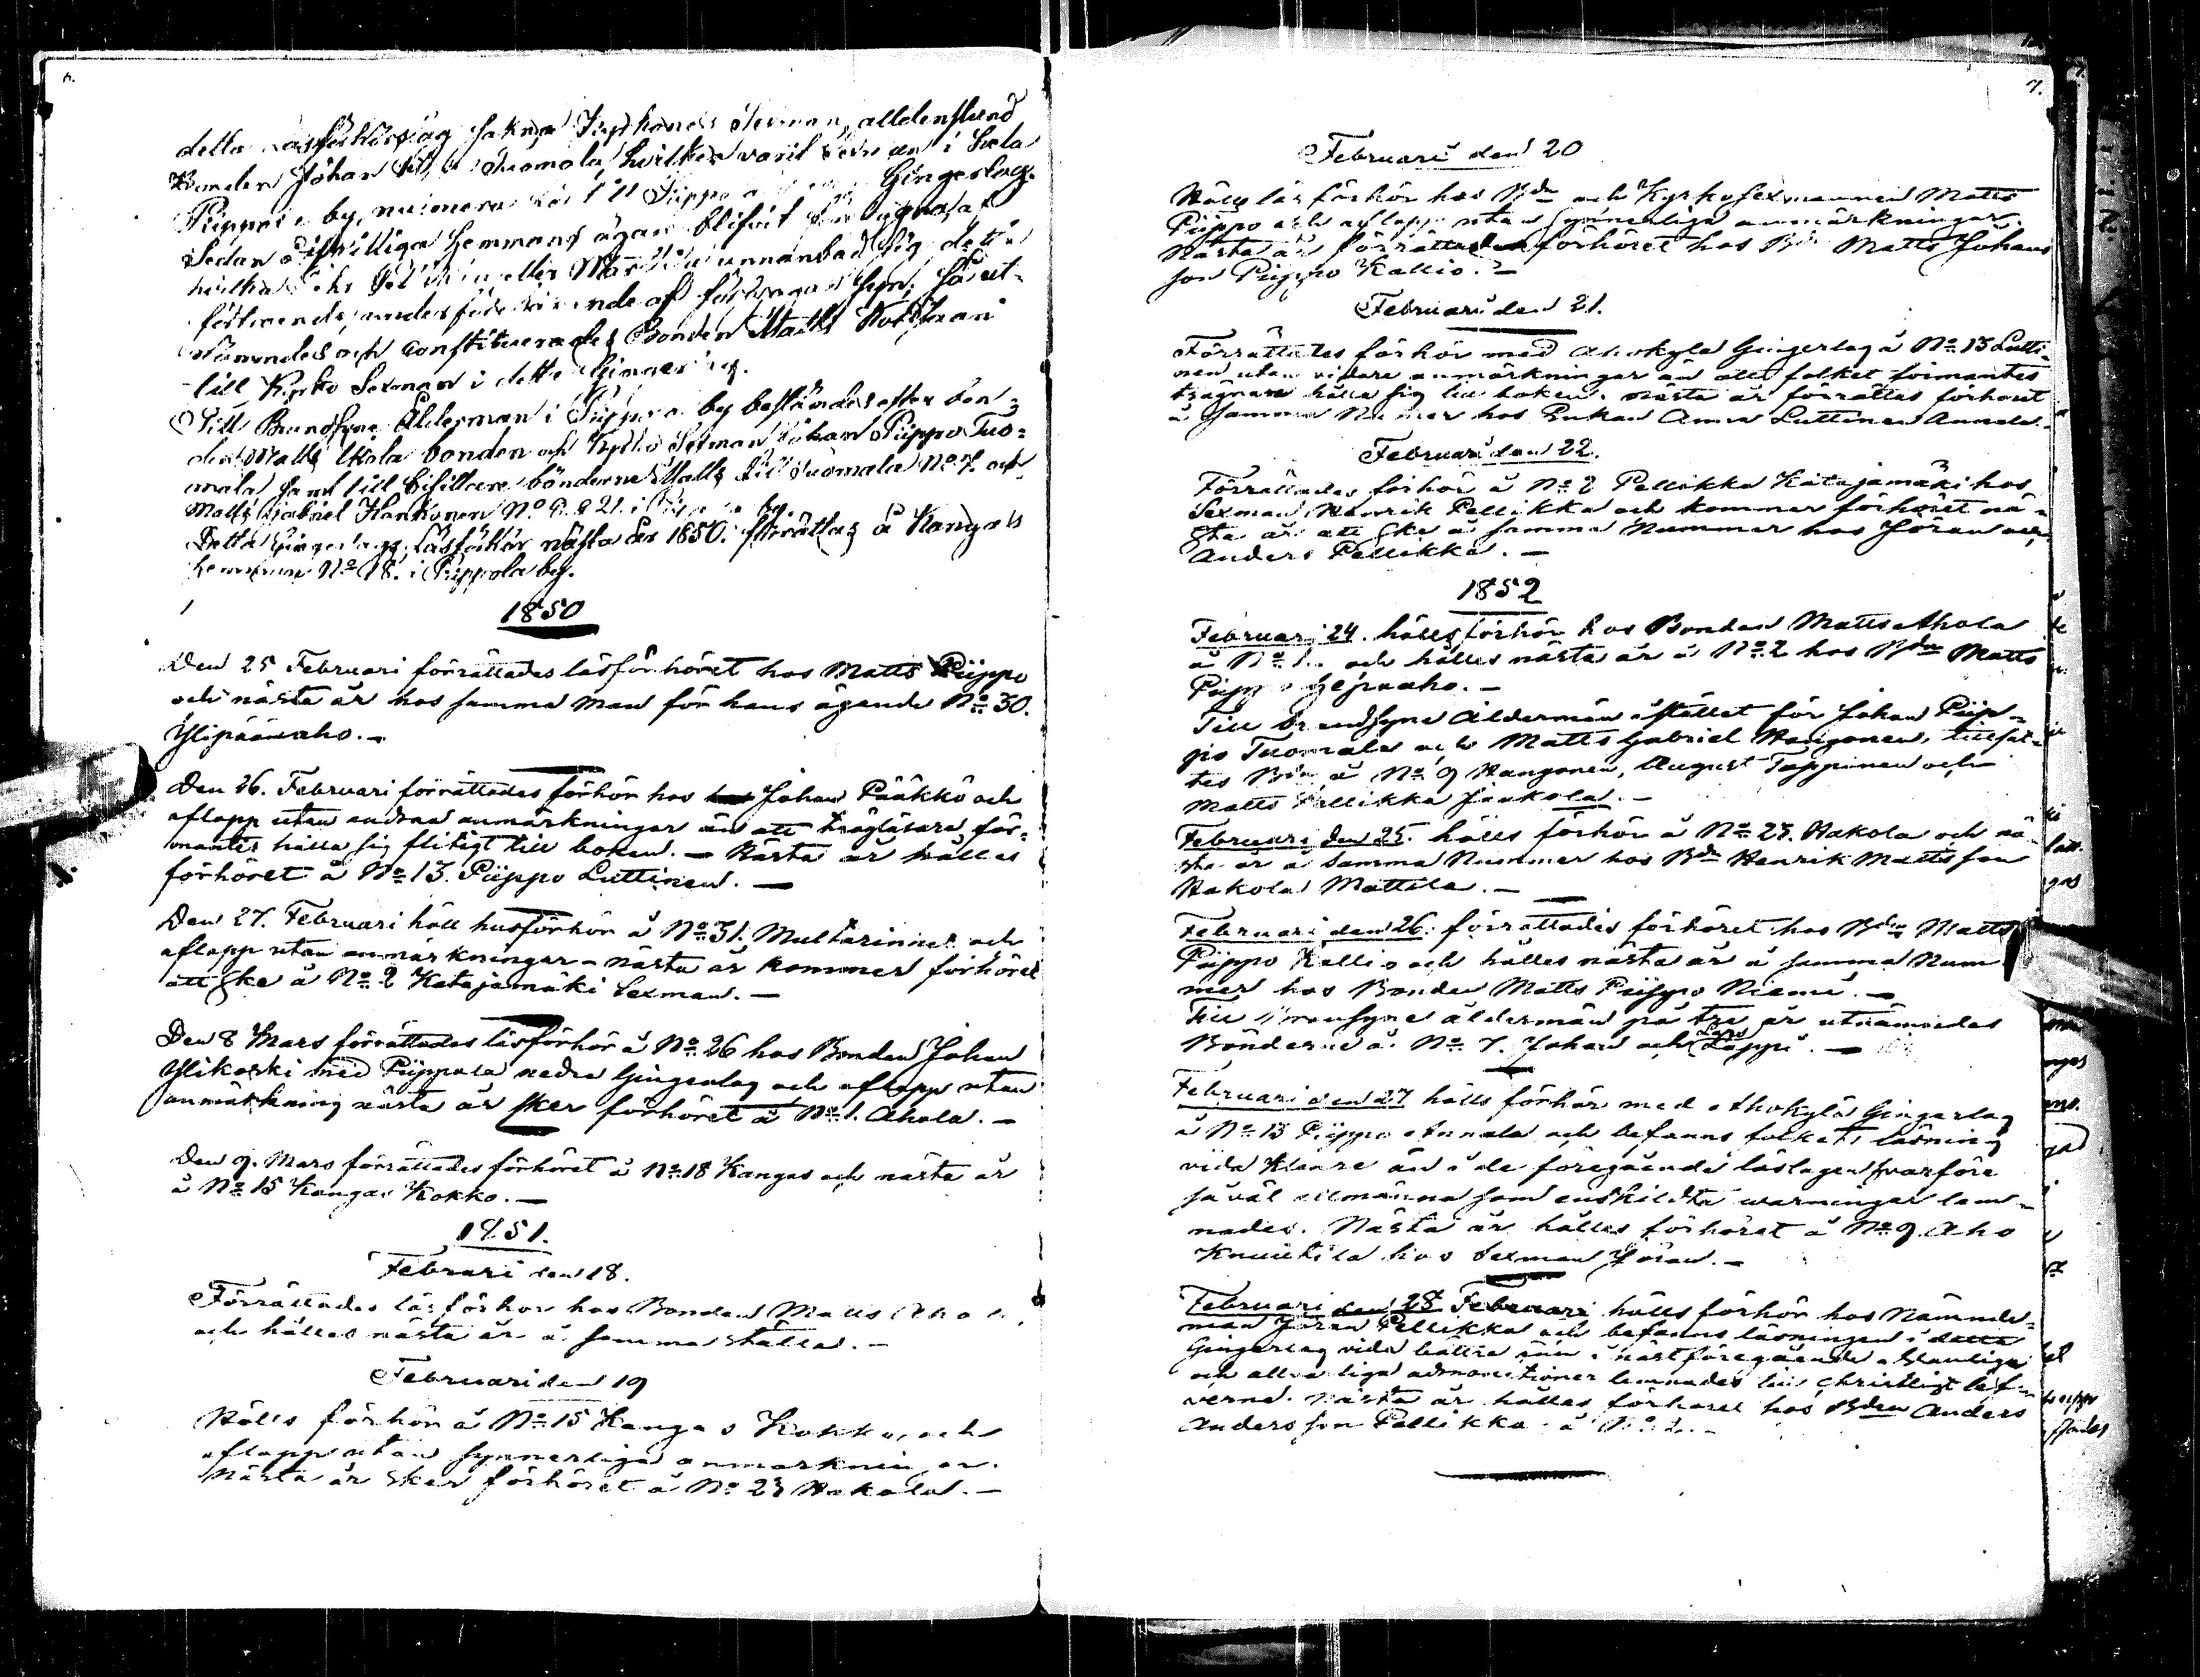 6.
detta läsförhörslag saknar Kyrkones Sexman, alldenstund
Bonden Johan Tuomola, hvilken varit Sexman i hela
Piippola by, numera till Piippo Gingerlag.
Sedan ofvillige Hemmans ägare blifvit
hvilka eller Märta unnanbad sig detta
förtroende, af
nämndes och constituerades Bonden Matts
till Kyrko Sexman i detta Gingerlag.
Till Brandsyns Ålderman i Piippola by bestämdes efter bön=
den Matts Ahola bonden och Kyrko Sexman Johan Piippo Tuo=
mala samt till bisittare bönderne Matts Tuomala No 7. och
Matts Gabriel Hankonen No 21. i by.
Detta Gingerlags läsförhör nästa år 1850. förrättas å Kangas
hemman No 18. i Piippola by.
1850
Den 25 Februari förrättades läsförhöret hos Matts Piippo
och nästa år hos samma man för hans ägande No 30.
Ylipääaho. -
Den 26. Februari förrättades förhör hos Johan Pääkkö och
aflopp utan andra anmärkningar än att trögläsare för-
mantes hålla sig flitigt till boken. - Nästa år hålles
förhöret å No 13. Piippo Luttinen. -
Den 27. Februari höll husförhör å No 31. Multarinne och
aflopp utan anmärkningar - nästa år kommer förhöret
att ske å No 2 Katajamäki Sexman. -
Den 8 Mars förrättades läsförhör å No 26 hos Bonden Johan
Ylikoski med Piippola nedra Gingerlag och aflopp utan
anmärkning nästa år sker förhöret å No 1. Ahola. -
Den 9. Mars förrättades förhöret å No 18 Kangas och nästa år
å No 15 Kangas Kokko. -
1851.
Februari den 18.
Förrättades läsförhör hos Bonden Matts Ahola
och hålles nästa år å samma ställe. -
Februari den 19
Hölls förhör å No 15 Kangas Kokko, och
aflopp utan synnerliga anmärkningar.
Nästa år sker förhöret å No 23 Hakola. -
7.
Februari den 20
Hölls läsförhör hos Bdn och Kyrkosexmannen Matts
Piippo och aflopp utan synnerliga anmärkningar.
Nästa år förrättas förhöret hos Bdn Matts Johans
son Piippo Kallio. -
Februari den 21.
Förrättades förhör med Ahokylä Gingerlag å No 13 Lutti-
nen utan vidare anmärkningar än att folket förmantes
trägnare hålla sig till boken. nästa år förrättas förhöret
å samma Nummer hos Enkan Anna Luttinen Annala.
Februari den 22.
Förrättades förhör å No 2 Pellikka Katajamäki hos
Sexman Henrik Pellikka och kommer förhöret nä-
sta år att ske å samma Nummer hos Jöran och
Anders Pellikka. -
1852
Februari 24. hölls förhör hos Bonden Matts Ahola
å No 1. och hålles nästa år å No 2 hos Bdn Matts
Piippo Lepuaho. -
Till brandsyns Ålderman i stället för Johan Piip-
po Tuomala och Matts Gabriel Hangonen, tillsat-
tes Bdn å No 9 Hangonen, August Tappinen och
Matts Pellikka Jaakola. -
Februari den 25. hölls förhör å No 23. Hakola och nä-
sta år å samma Nummer hos Bdn Henrik Mattsson
Hakola Mattila. -
Februari den 26. förrättades förhöret hos Bdn Matts
Piippo Kallio och hålles nästa år å samma Num
mer hos Bonden Matts Piippo Niemi. -
Till Brandsyns ålderman på tre år utnämndes
Bönderne å No 7. Johan och Lars Lappi. -
Februari den 27 hölls förhör med Ahokylä Gingerlag
å No 13 Piippo Annala och befanns folkets läsning
vida klenare än i de föregående läslagen hvarföre
såväl allmänna som enskildta warningar lem-
nades. Nästa år hålles förhöret å No 9. Aho
Knuutila hos Sexman Jöran. -
Februari den 28 Februari hölls förhör hos Nämnde-
man Jöran Pellikka och befanns läsningen i detta
Gingerlag vida bättre än i näst föregående
och allvarliga admonitioner lemnades till christligt lef-
verne. nästa år hålles förhöret hos Bden Anders
Andersson Pellikka å No 2. -